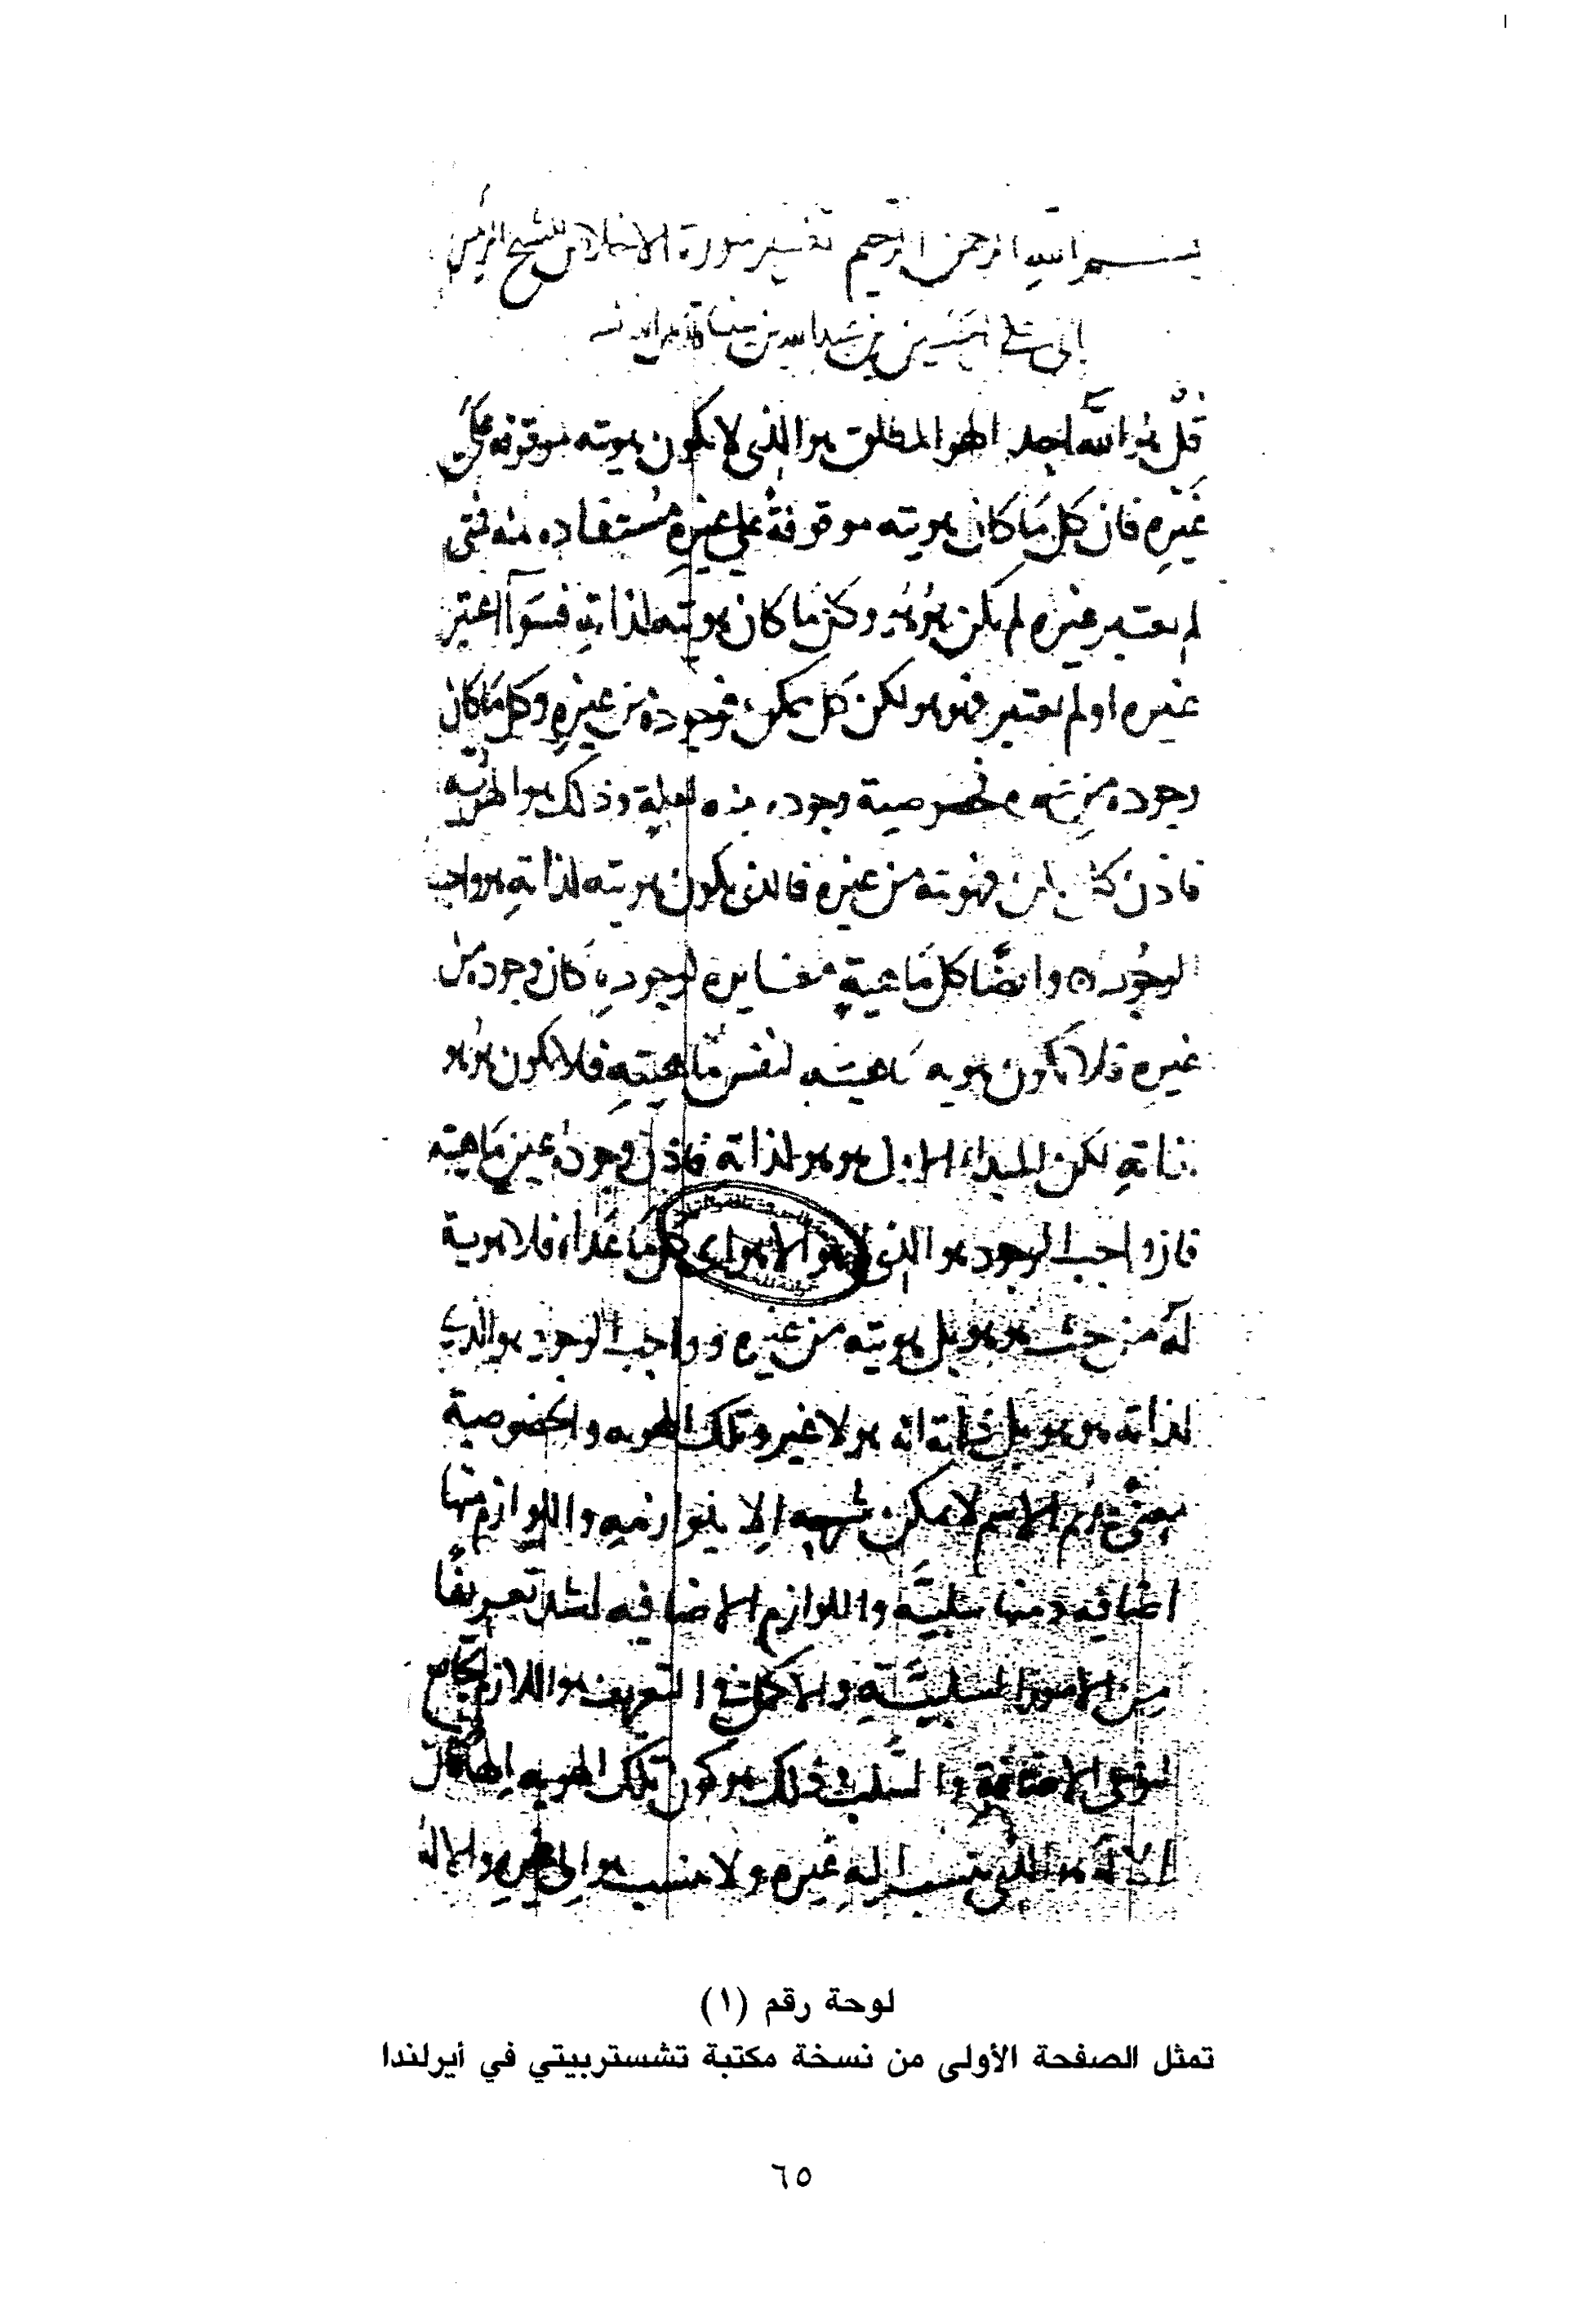 بسم الله الرحمن الرحيم تفسير سورة الاخلاص للشيخ الرئيس
ابى على الحسين بن عبدالله بن سينا
قل هو الله احد الهو المطلق هو الذى لا تكون هويته موقوفه على
غيره فان كل ما كان هويته موقوفة على غيره مستفاده منه فمتى
لم يعتبر غيره لم يكن هو هو وكل ما كان هويته لذاته فسوآ اعتبر
غيره او لم يعتبر فهو هو لكن كل ممكن فوجوده من غيره وكل ما كان
وجوده من غيره فخصوصية وجوده منه وذلك هو الهويه
فاذن كل ممكن فهويته من غيره فالذى يكون هويته لذاته هو واجب
الوجود وايضا كل ماهية مغايره لوجوده كان وجوده من
غيره فلا تكون هويه ماهيته لنفس ماهيته فلا تكون هو هو
لذاته لكن المبداء الاول هو هو لذاته فاذن وجوده عين ماهيته
فاذن واجب الوجود هو الذى لا هو الا هو اى كل ما عداه فلا هوية
له من حيث هو هو بل هويته من غيره وواجب الوجود هو الذى
لذاته هو هو بل ذاته انه هو لا غير وتلك الهويه والخصوصية
معنى عديم الاسم لا يمكن شرحه الا بلوازمه واللوازم منها
اضافيه ومنها سلبيه واللوازم الاضافيه اشد تعريفا
من الامور السلبية والاكمل فى التعريف هو اللازم الجامع
لنوعى الاضافة والسلب وذلك هو كون تلك الهويه الها فان
الاله هو الذى ينسب اليه غيره ولا ينسب هو الى غيره والاله
لوحة رقم (١)
تمثل الصفحة الأولى من نسخة مكتبة تشستربيتي في أيرلندا
٦٥